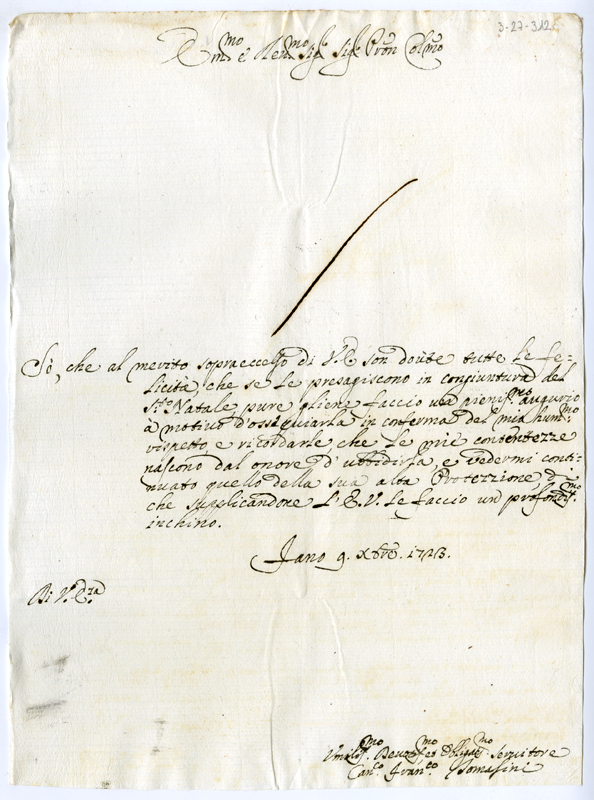 3-27-312
Em.mo e Reu.mo Sig.r Sig.r Pron Colmo
Sò, che al merito sopraeccelso di V.E. son douute tutte le fe=
licità che se le presagiscono in congiuntura del
S.to Natale, pure gliene faccio un pieniss.mo augurio
à motivo d'ossequiarla in conferma del mio hum.mo
rispetto e ricordarle che le mie contentezze
nascono dal onore d'ubbidirla, e vedermi conti=
nuato quello della sua alta Protezzione, di
che supplicandone L'E.V. le faccio un profondis.mo
inchino.
Jano 9. Xbre. 1723.
Di V.Em.za
Umilis.mo Deuotis.mo et Obligat.mo Seruitore
Can.co Fran.co Tomasini